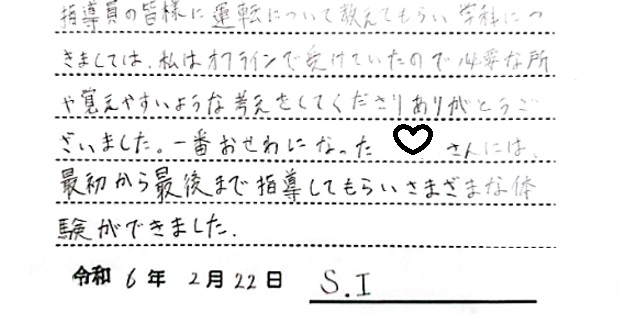 指導員の皆様に運転について教えてもらい学科につ
きましては、私はオフラインで受けていたので必要な所
や覚えやすいような考えをしてくださりありがとうご
ざいました。一番おせわになった さんには、
最初から最後まで指導してもらいさまざまな体
験ができました.
令和 6 年 2 月 22 日 S.I